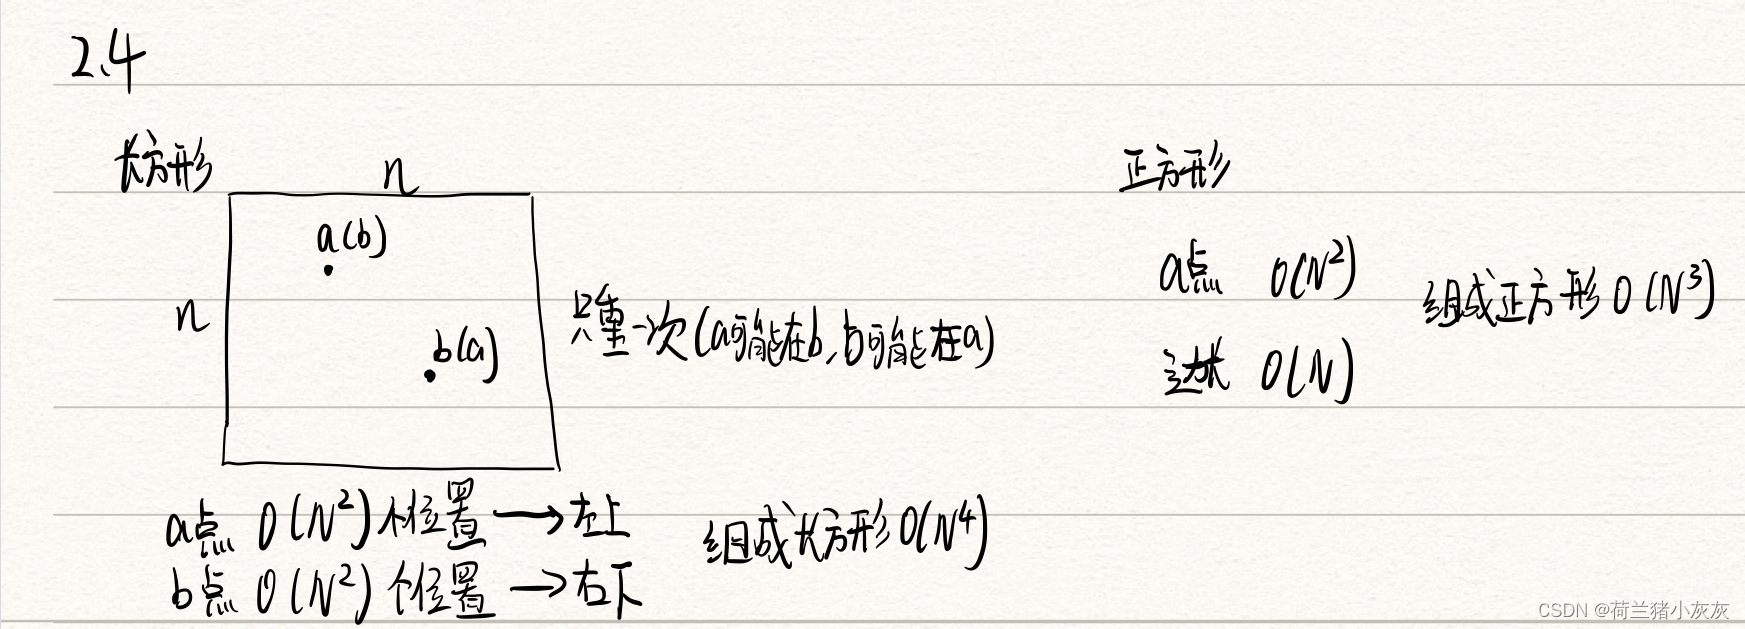 2.4
长方形
n
a(b)
n
b(a)
只重一次(a可能在b,b可能在a)
a点 O(N²)个位置→左上
b点 O(N²)个位置→右下
组成长方形O(N⁴)
正方形
a点 O(N²)
边长 O(N)
组成正方形O(N³)
CSDN @荷兰猪小灰灰